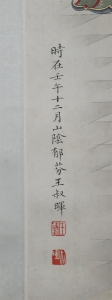 時在壬午十二月山陰郁芬王叔暉